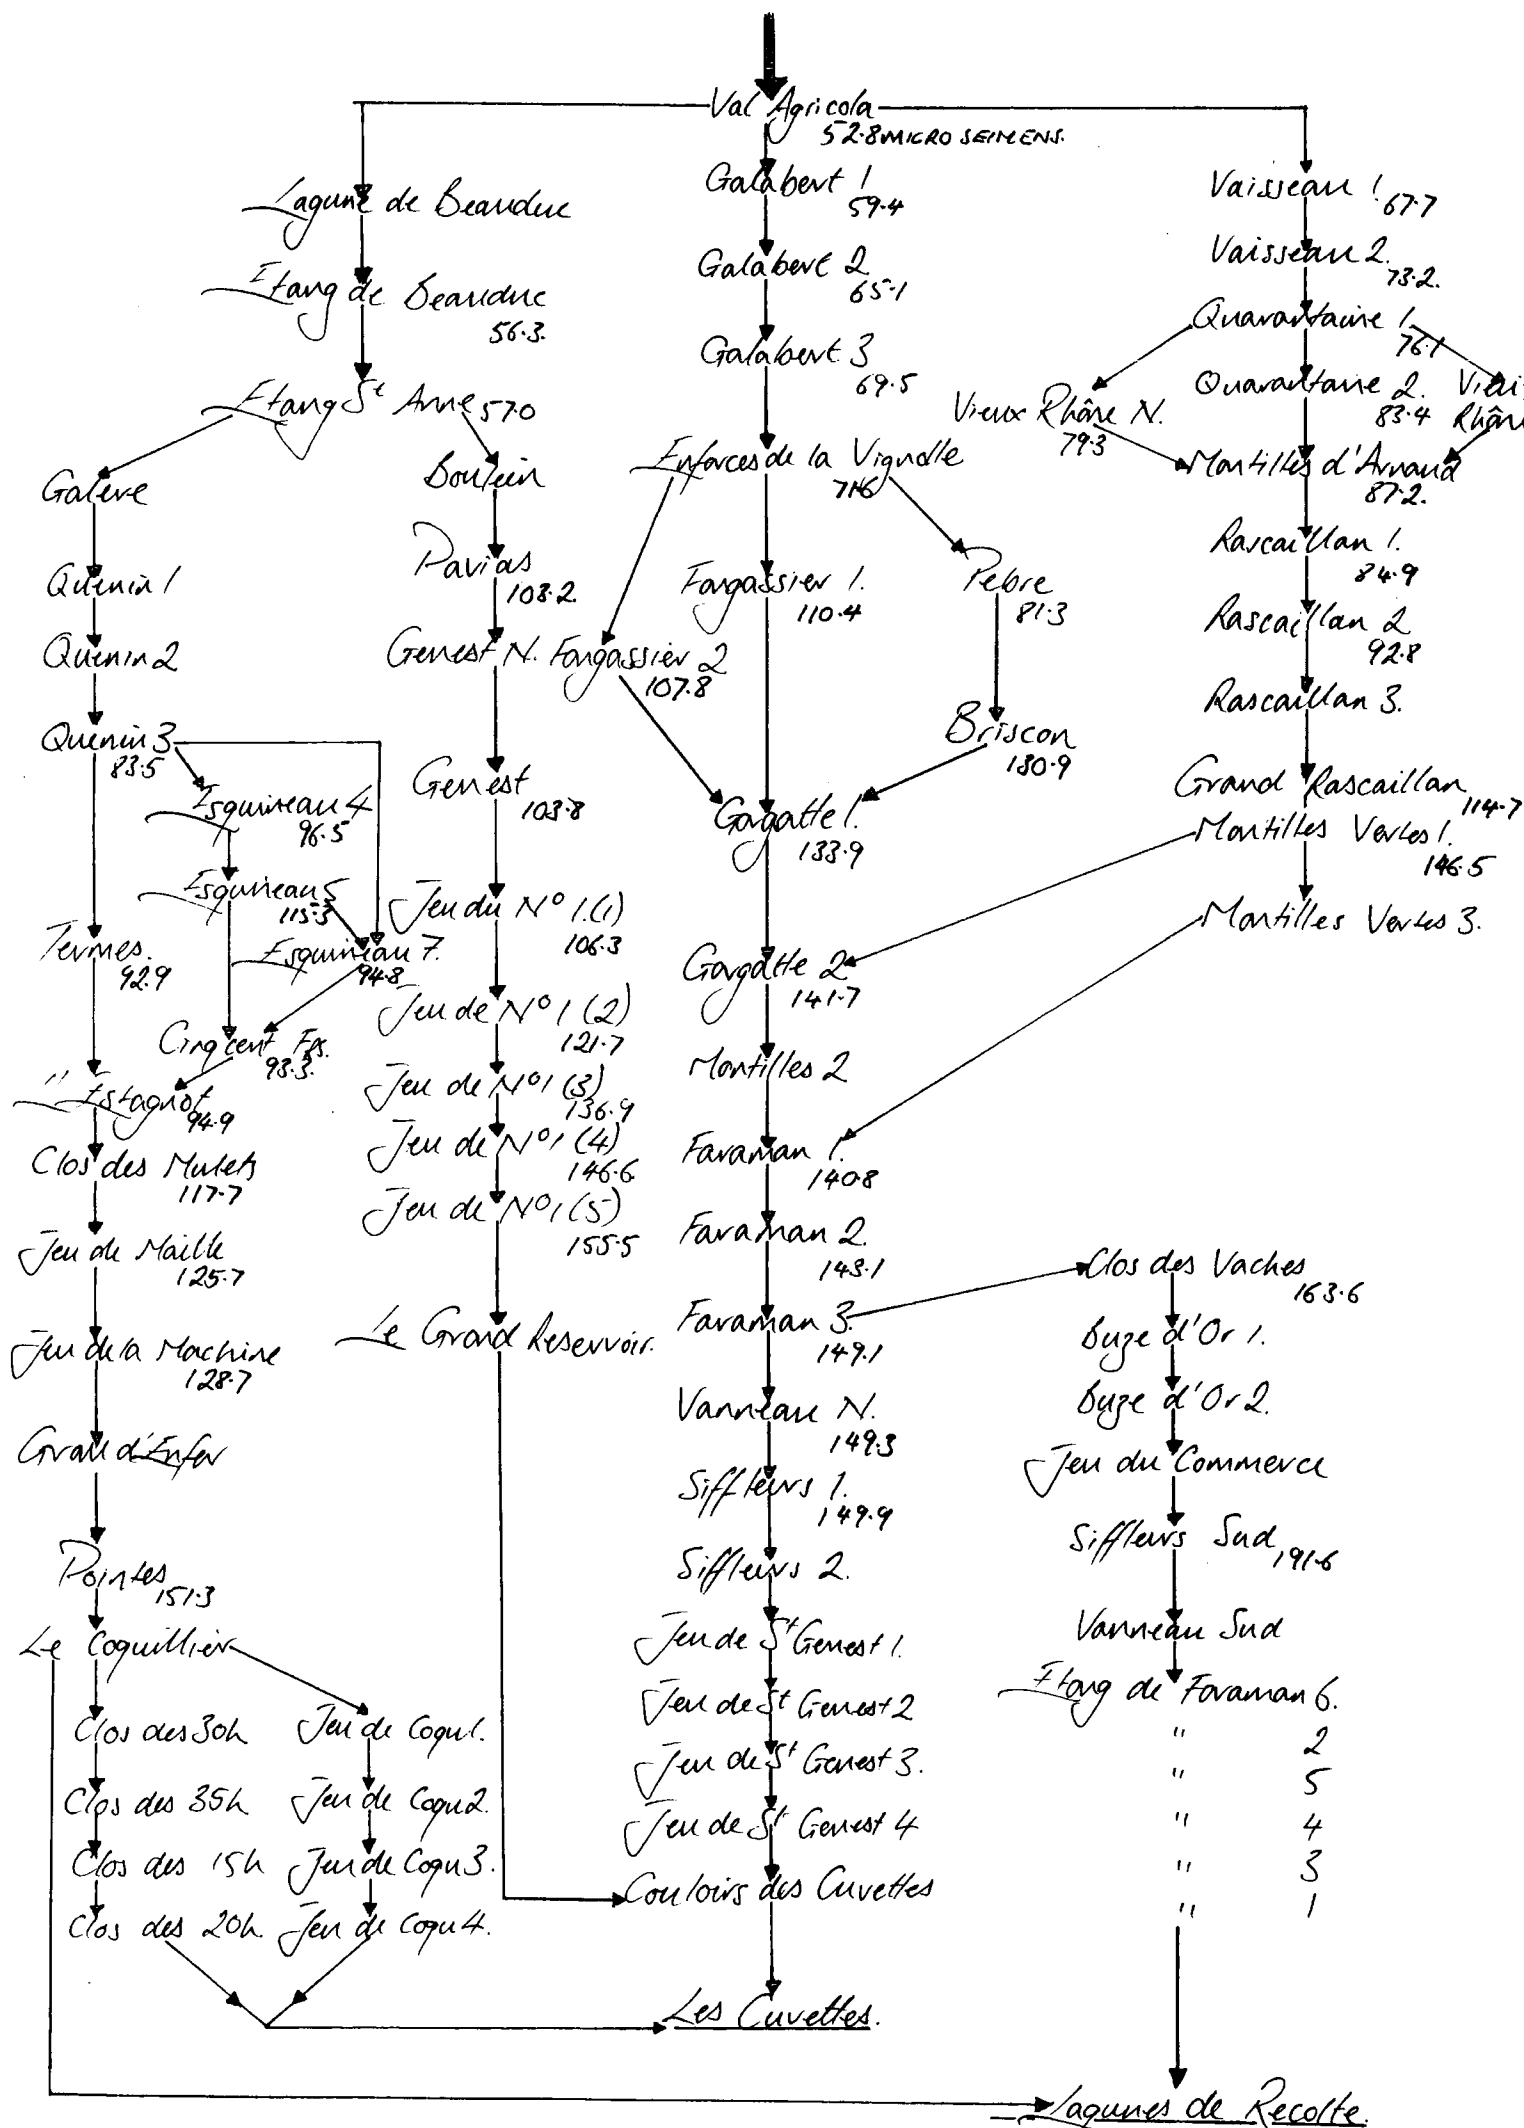 Val Agricola
52.8 MICRO SEIMENS.
Lagune de Beauduc
Etang de Beauduc
56.3.
Etang St Anne 57.0
Galère
Quenin 1
Quenin 2
Quenin 3
83.5
Esquineau 4
96.5
Esquineau 5
115.3
Esquineau 7.
94.8
Termes.
92.9
Cinqcent Frs.
93.3.
L'Estagnot
94.9
Clos des Mulets
117.7
Jeu de Maille
125.7
Jeu de la Machine
128.7
Grau d'Enfer
Pointes
151.3
Le Coquillier
Clos des 30h
Clos des 35h
Clos des 15h
Clos des 20h.
Jeu de Coqu1.
Jeu de Coqu2.
Jeu de Coqu3.
Jeu de Coqu4.
Pavias
108.2
Genest N.
Genest
103.8
Jeu du No 1.(1)
106.3
Jeu de No 1 (2)
121.7
Jeu de No1 (3)
136.9
Jeu de No1 (4)
146.6
Jeu de No1 (5)
155.5
Le Grand Reservoir.
Galabert 1
59.4
Galabert 2
65.1
Galabert 3
69.5
Enforces de la Vignolle
71.6
Fangassier 1.
110.4
Fangassier 2
107.8
Pebre
81.3
Briscon
130.9
Gagatte 1.
133.9
Gargatte 2
141.7
Montilles 2
Faraman 1.
140.8
Faraman 2.
143.1
Faraman 3.
149.1
Vanneau N.
149.3
Siffleurs 1.
149.9
Siffleurs 2.
Jeu de St Genest 1.
Jeu de St Genest 2
Jeu de St Genest 3.
Jeu de St Genest 4
Couloirs des Cuvettes
Les Cuvettes.
Vaisseau 1.
67.7
Vaisseau 2.
73.2.
Quarantaine 1.
76.1
Vieux Rhône N.
79.3
Quarantaine 2.
83.4
Rhône
Montilles d'Arnaud
87.2.
Rascaillan 1.
84.9
Rascaillan 2
92.8
Rascaillan 3.
Grand Rascaillan
114.7
Montilles Vertes 1.
146.5
Montilles Vertes 3.
Clos des Vaches
163.6
Buze d'Or 1.
Buze d'Or 2.
Jeu du Commerce
Siffleurs Sud
191.6
Vanneau Sud
Etang de Faraman 6.
" 2
" 5
" 4
" 3
" 1
Lagunes de Recolte.